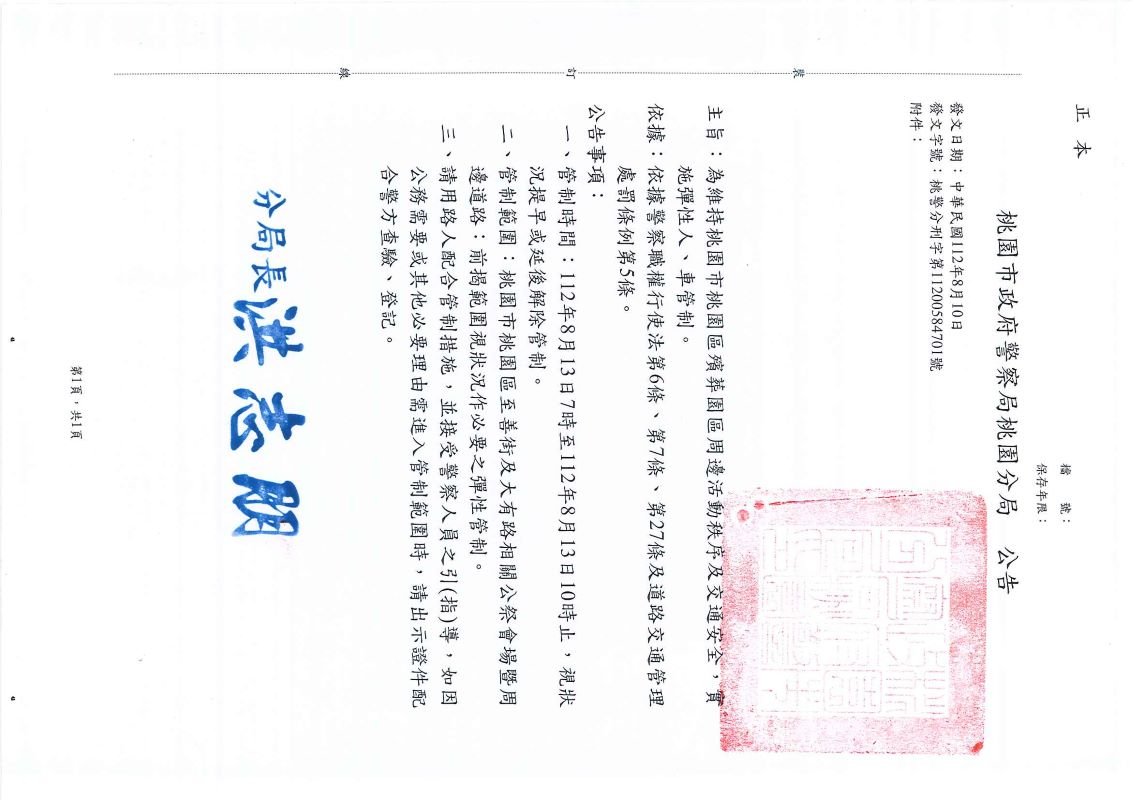 正本
檔　　號：
保存年限：
桃園市政府警察局桃園分局　公告
發文日期：中華民國112年8月10日
發文字號：桃警分刑字第1120058470１號
附件：
主旨：為維持桃園市桃園區殯葬園區周邊活動秩序及交通安全，實
施彈性人、車管制。
依據：依據警察職權行使法第6條、第7條、第27條及道路交通管理
處罰條例第5條。
公告事項：
一、管制時間：112年8月13日7時至112年8月13日10時止，視狀
況提早或延後解除管制。
二、管制範圍：桃園市桃園區至善街及大有路相關公祭會場暨周
邊道路：前揭範圍視狀況作必要之彈性管制。
三、請用路人配合管制措施，並接受警察人員之引(指)導，如因
公務需要或其他必要理由需進入管制範圍時，請出示證件配
合警方查驗、登記。
分局長 洪志朋
裝
訂
線
第1頁，共1頁